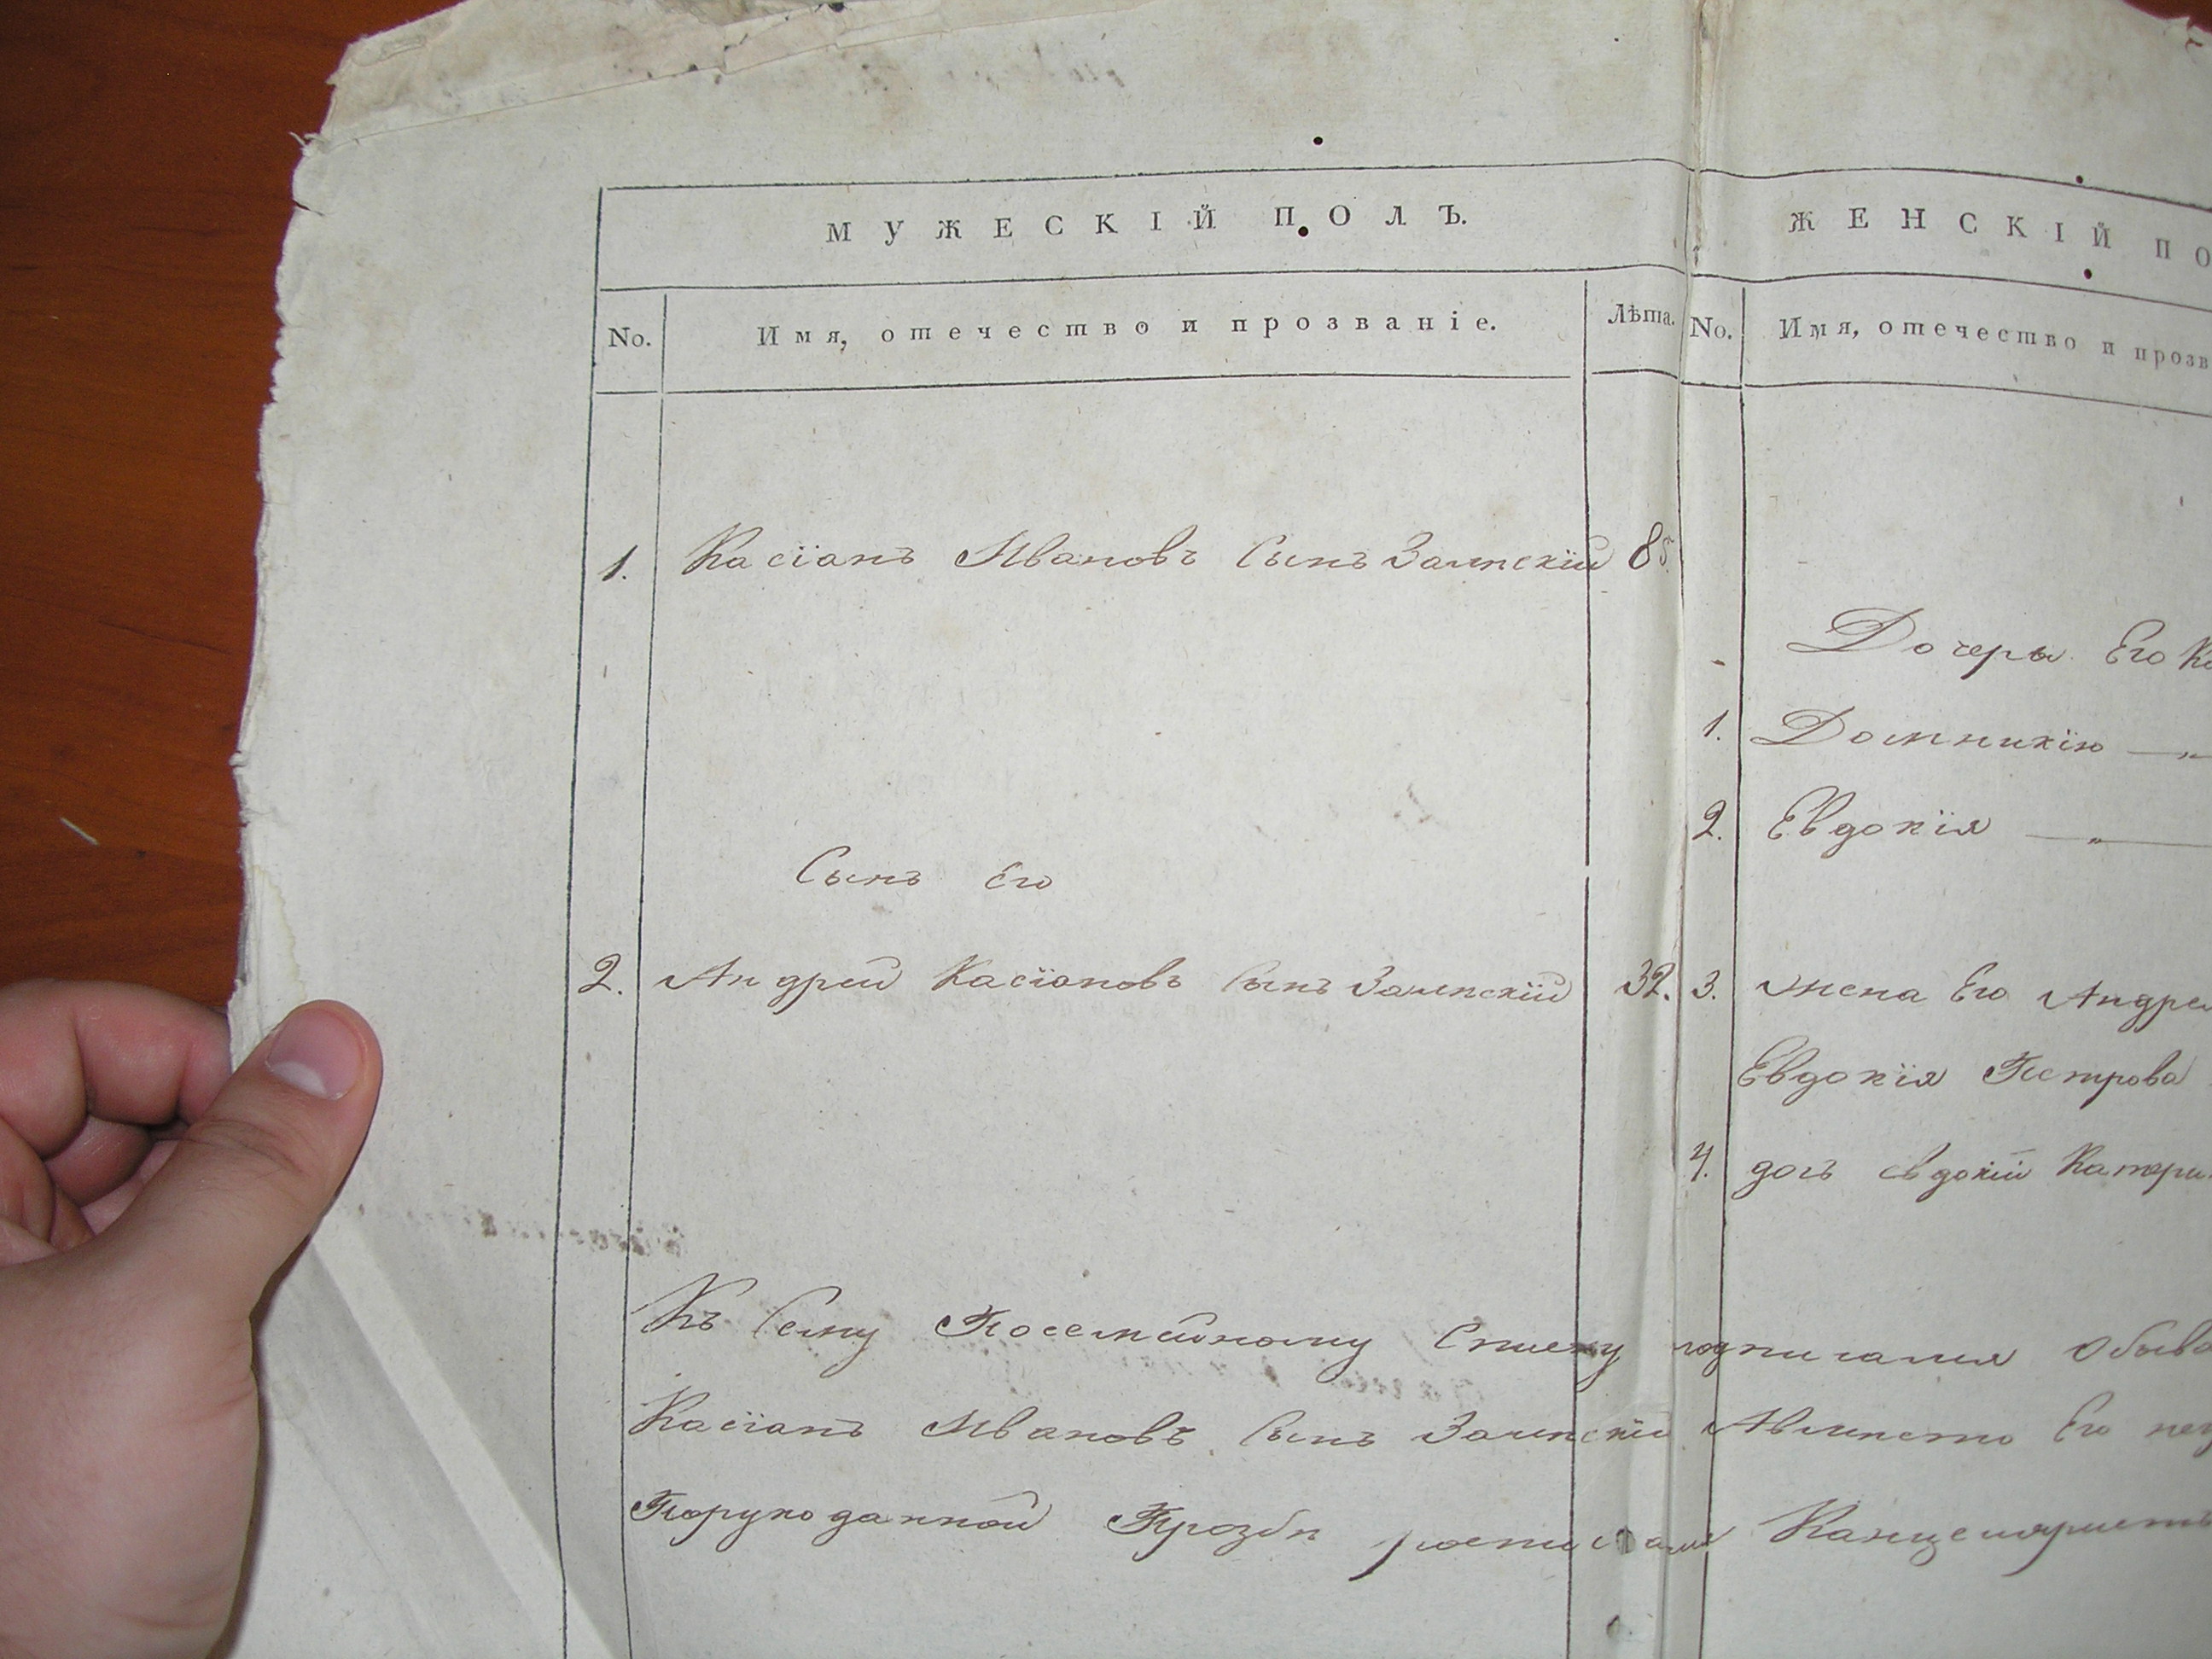 МУЖЕСКІЙ ПОЛЪ.
ЖЕНСКІЙ ПО
No.
Имя, отечество и прозваніе.
Лѣта.
No.
Имя, отечество и прозв
1. Касіанъ Ивановъ Сынъ Зампскій 85.
Дочеры Его Ка
1. Домникію
2. Евдокія
Сынъ Его
2. Андрей Касіановъ Сынъ Зампскій 32.
3. Жена Его Андрея
Евдокія Петрова
4. дочь евдокіи Катери
Къ Сему Посемейному Списку подписался Обыва
Касіанъ Ивановъ Сынъ Зампскій Авместо Его неу
Порукоданной Прозби росписался Канцеляристъ